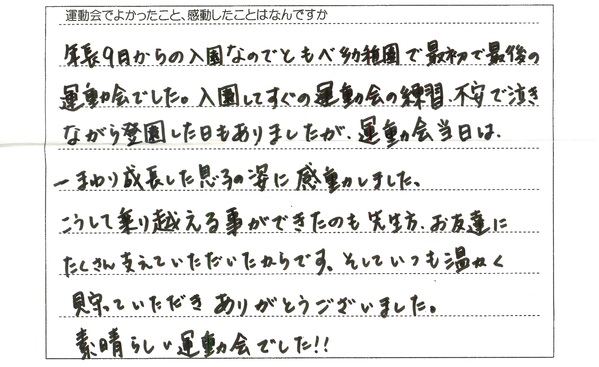 運動会でよかったこと、感動したことはなんですか
年長9月からの入園なのでともべ幼稚園で最初で最後の
運動会でした。入園してすぐの運動会の練習、不安で泣き
ながら登園した日もありましたが、運動会当日は、
一まわり成長した息子の姿に感動しました。
こうして乗り越える事ができたのも先生方、お友達に
たくさん支えていただいたからです。そしていつも温かく
見守っていただきありがとうございました。
素晴らしい運動会でした!!